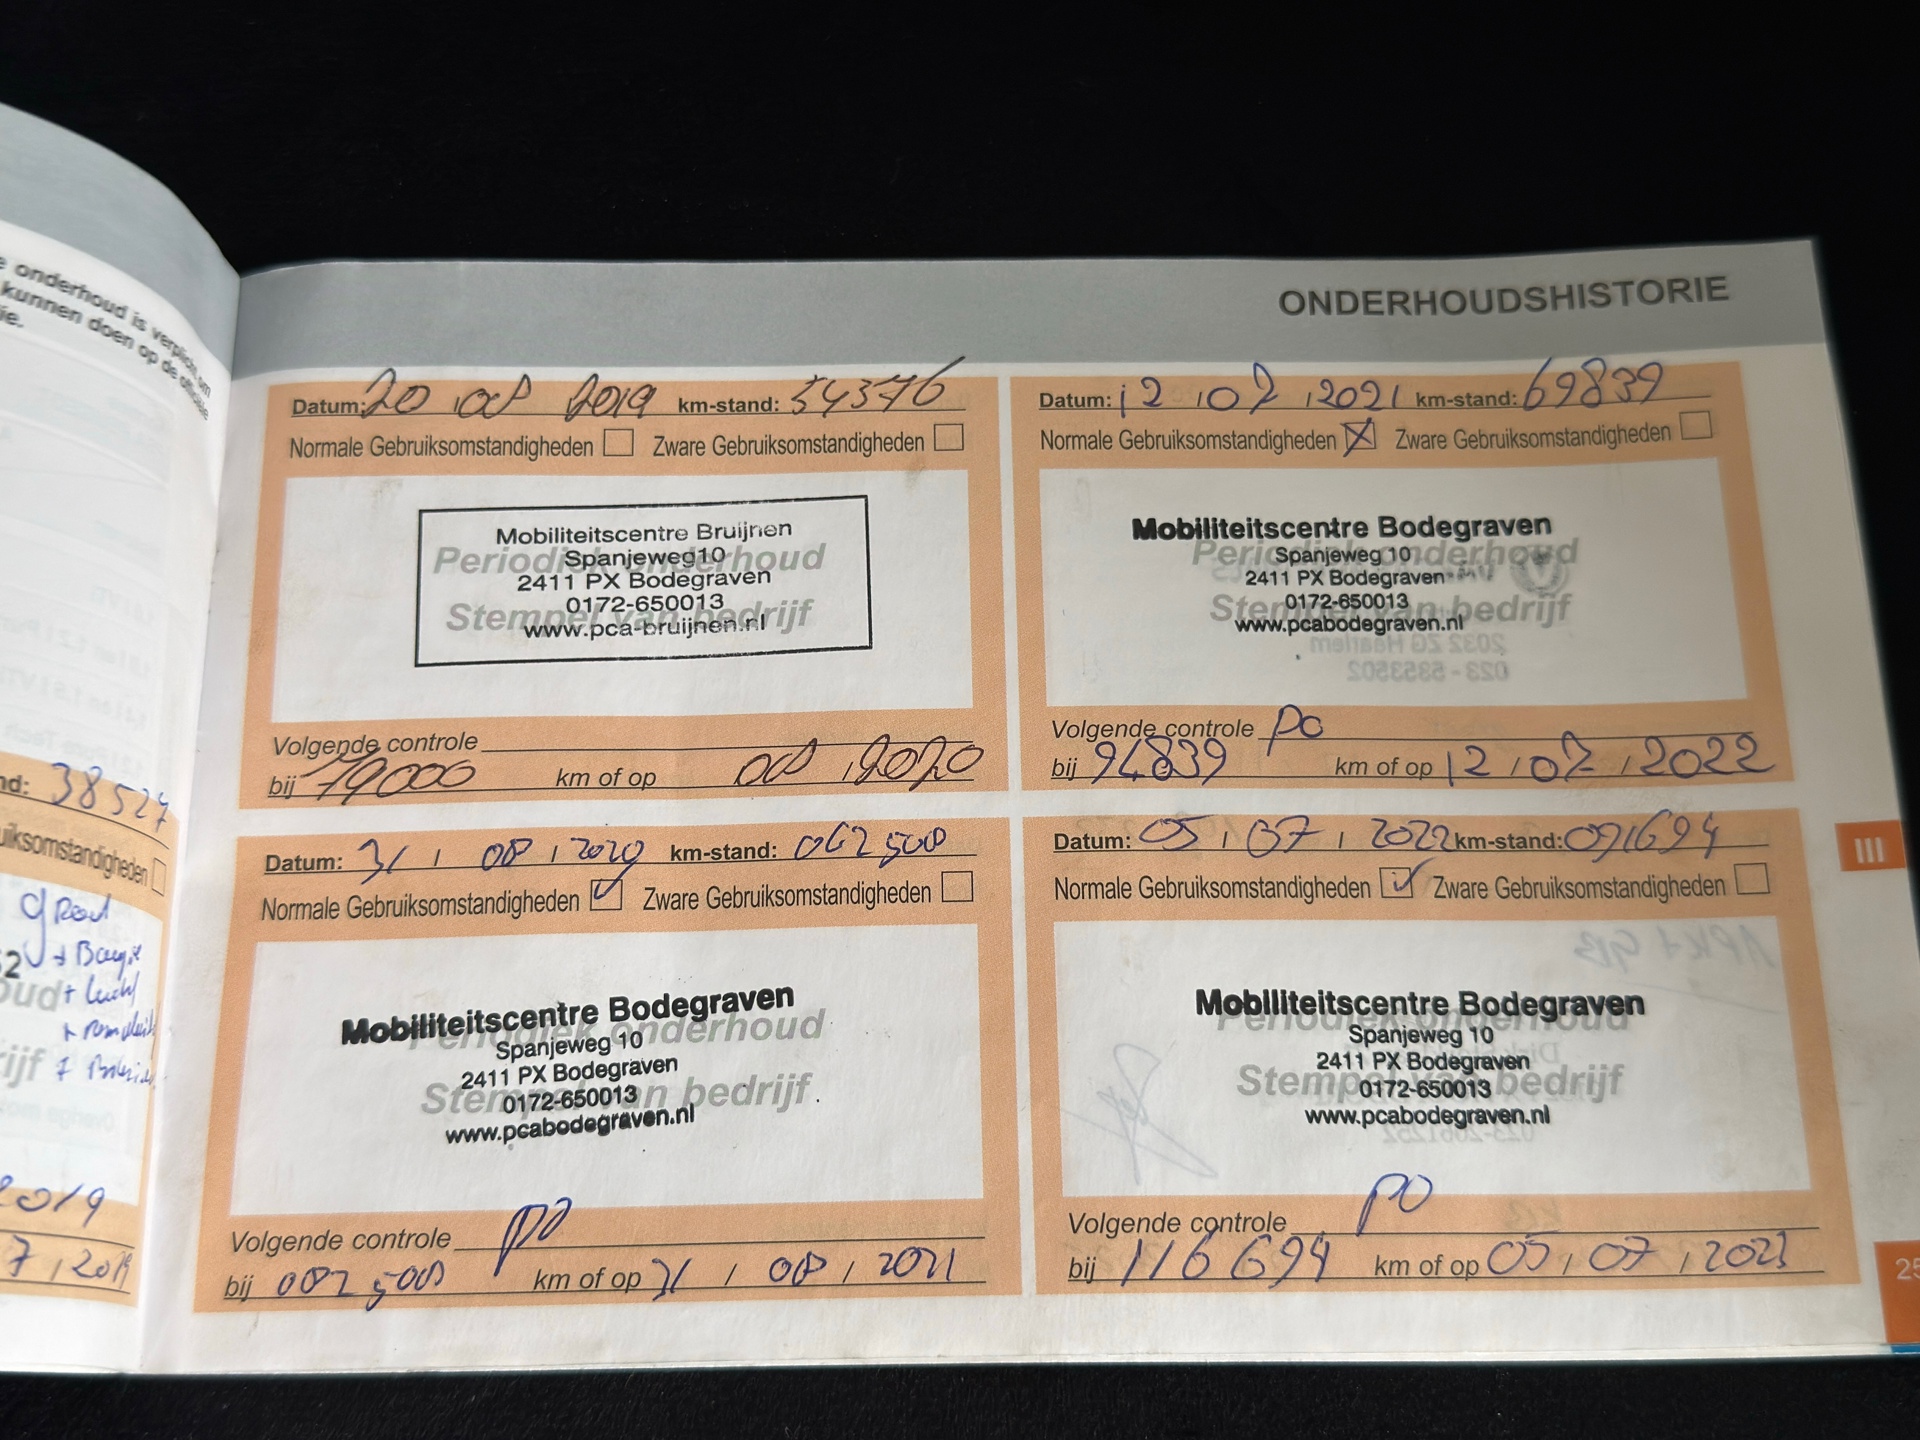 e onderhoud is verplicht om
kunnen doen op de officiële
ie.
nd: 38527
uiksomstandigheden
g Rad
+ Bougie
oud +
rijf +
2019
7 / 2019
ONDERHOUDSHISTORIE
Datum: 20 / 08 2019 km-stand: 54376
Normale Gebruiksomstandigheden Zware Gebruiksomstandigheden
Mobiliteitscentre Bruijnen
Periodiek onderhoud
Spanjeweg 10
2411 PX Bodegraven
0172-650013
Stempel van bedrijf
www.pca-bruijnen.nl
Volgende controle
bij 79000 km of op 08 / 2020
Datum: 12 / 07 / 2021 km-stand: 69839
Normale Gebruiksomstandigheden Zware Gebruiksomstandigheden
Mobiliteitscentre Bodegraven
Periodiek onderhoud
Spanjeweg 10
2411 PX Bodegraven
0172-650013
Stempel van bedrijf
www.pcabodegraven.nl
Volgende controle PO
bij 94839 km of op 12 / 07 / 2022
Datum: 31 / 08 / 2020 km-stand: 062508
Normale Gebruiksomstandigheden Zware Gebruiksomstandigheden
Mobiliteitscentre Bodegraven
Periodiek onderhoud
Spanjeweg 10
2411 PX Bodegraven
Stempel van bedrijf
0172-650013
www.pcabodegraven.nl
Volgende controle PO
bij 082508 km of op 31 / 08 / 2021
Datum: 05 / 07 / 2022 km-stand: 091694
Normale Gebruiksomstandigheden Zware Gebruiksomstandigheden
Mobiliteitscentre Bodegraven
Periodiek onderhoud
Spanjeweg 10
2411 PX Bodegraven
Stempel van bedrijf
0172-650013
www.pcabodegraven.nl
Volgende controle PO
bij 116694 km of op 05 / 07 / 2023
III
25